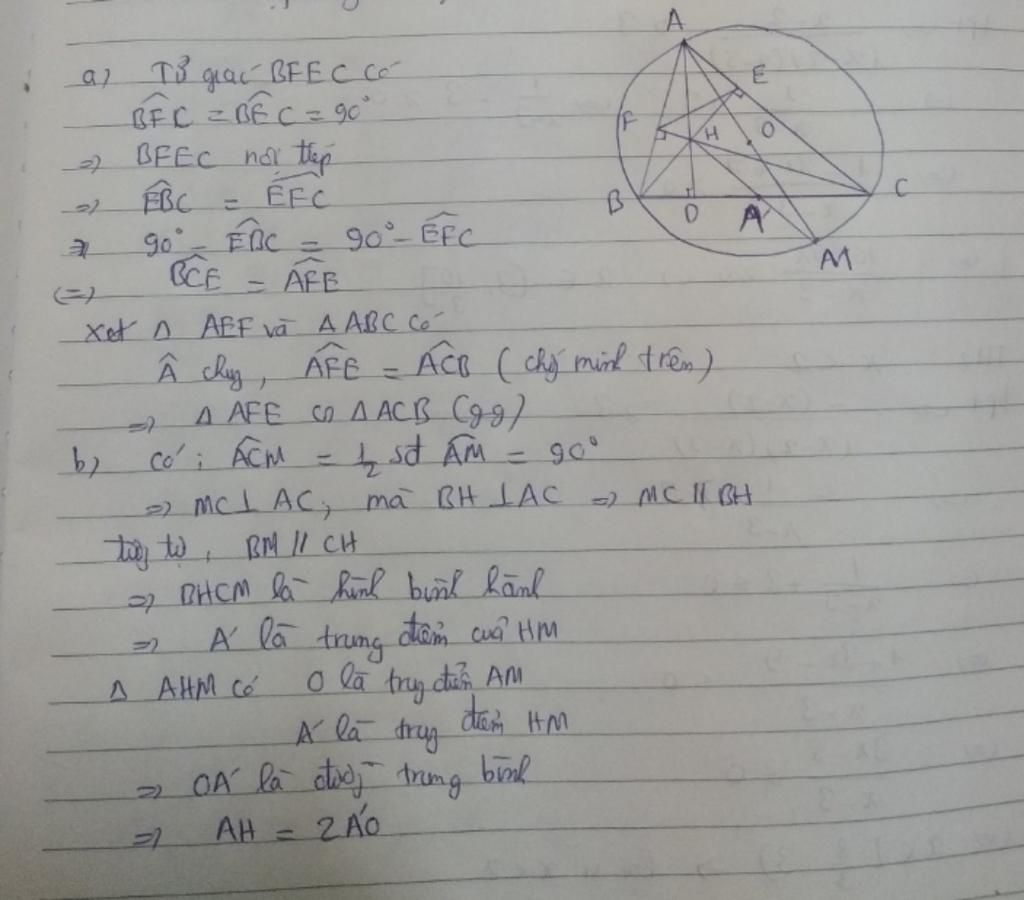 a) Tứ giác BFEC có
B̂FC = B̂EC = 90°
=> BFEC nội tiếp
=> ÊBC = ÊFC
=> 90° - ÊBC = 90° - ÊFC
(=) B̂CE = ÂFE
Xét Δ AEF và Δ ABC có
Â chg, ÂFE = ÂCB (chg minh trên)
=> Δ AFE ∽ Δ ACB (gg)
b) Có: ÂCM = 1/2 sđ A͡M = 90°
=> MC ⊥ AC, mà BH ⊥ AC => MC // BH
tg tự, BM // CH
=> BHCM là hình bình hành
=> A' là trung điểm cuả HM
Δ AHM có O là trg điểm AM
A' là trug điểm HM
=> OA' là đườg trung bình
=> AH = 2A'O
A
E
F
H
O
B
D
A'
C
M